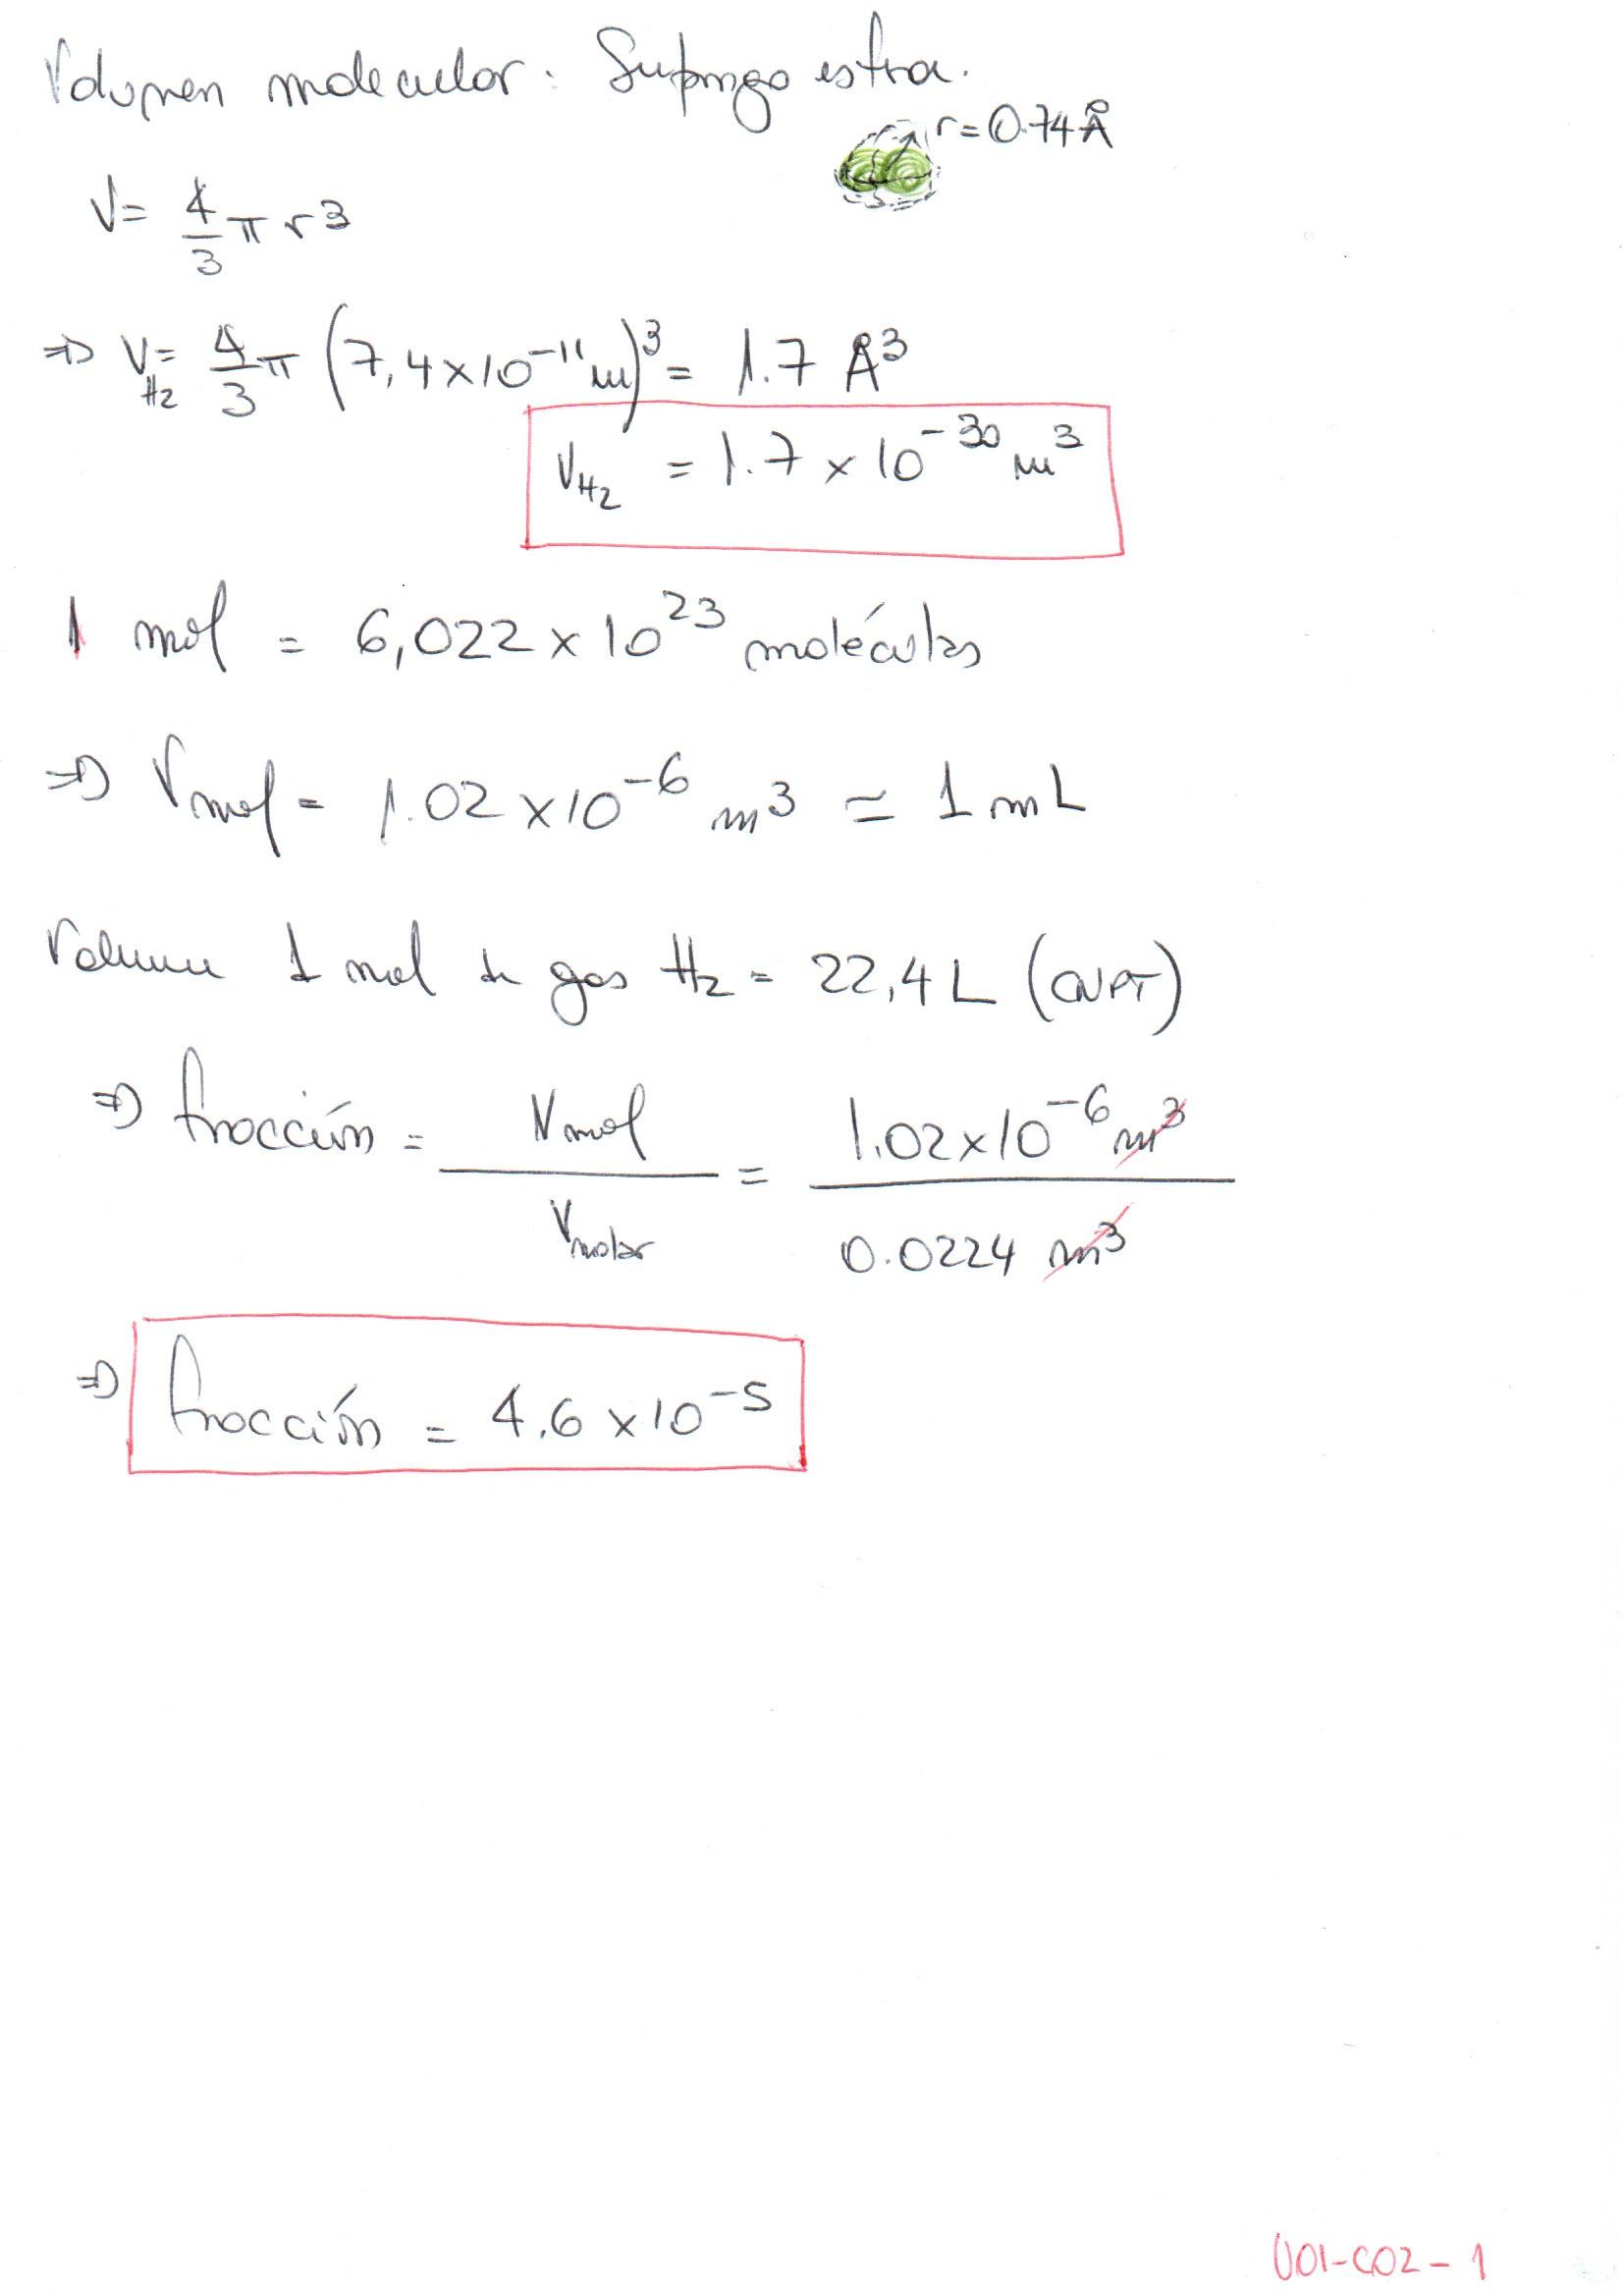 Volumen molecular: Supongo esfera.
r=0.74Å
V= 4/3 π r³
⇒ V_H₂= 4/3 π (7,4×10⁻¹¹ m)³ = 1.7 Å³
V_H₂ = 1.7 × 10⁻³⁰ m³
1 mol = 6,022 × 10²³ moléculas
⇒ Vmol = 1.02 ×10⁻⁶ m³ ≃ 1 mL
Volumen 1 mol de gas H₂ = 22,4 L (CNPT)
⇒ fracción = Vmol / Vmolar = 1.02×10⁻⁶ m³ / 0.0224 m³
⇒ fracción = 4.6 ×10⁻⁵
U01-C02-1